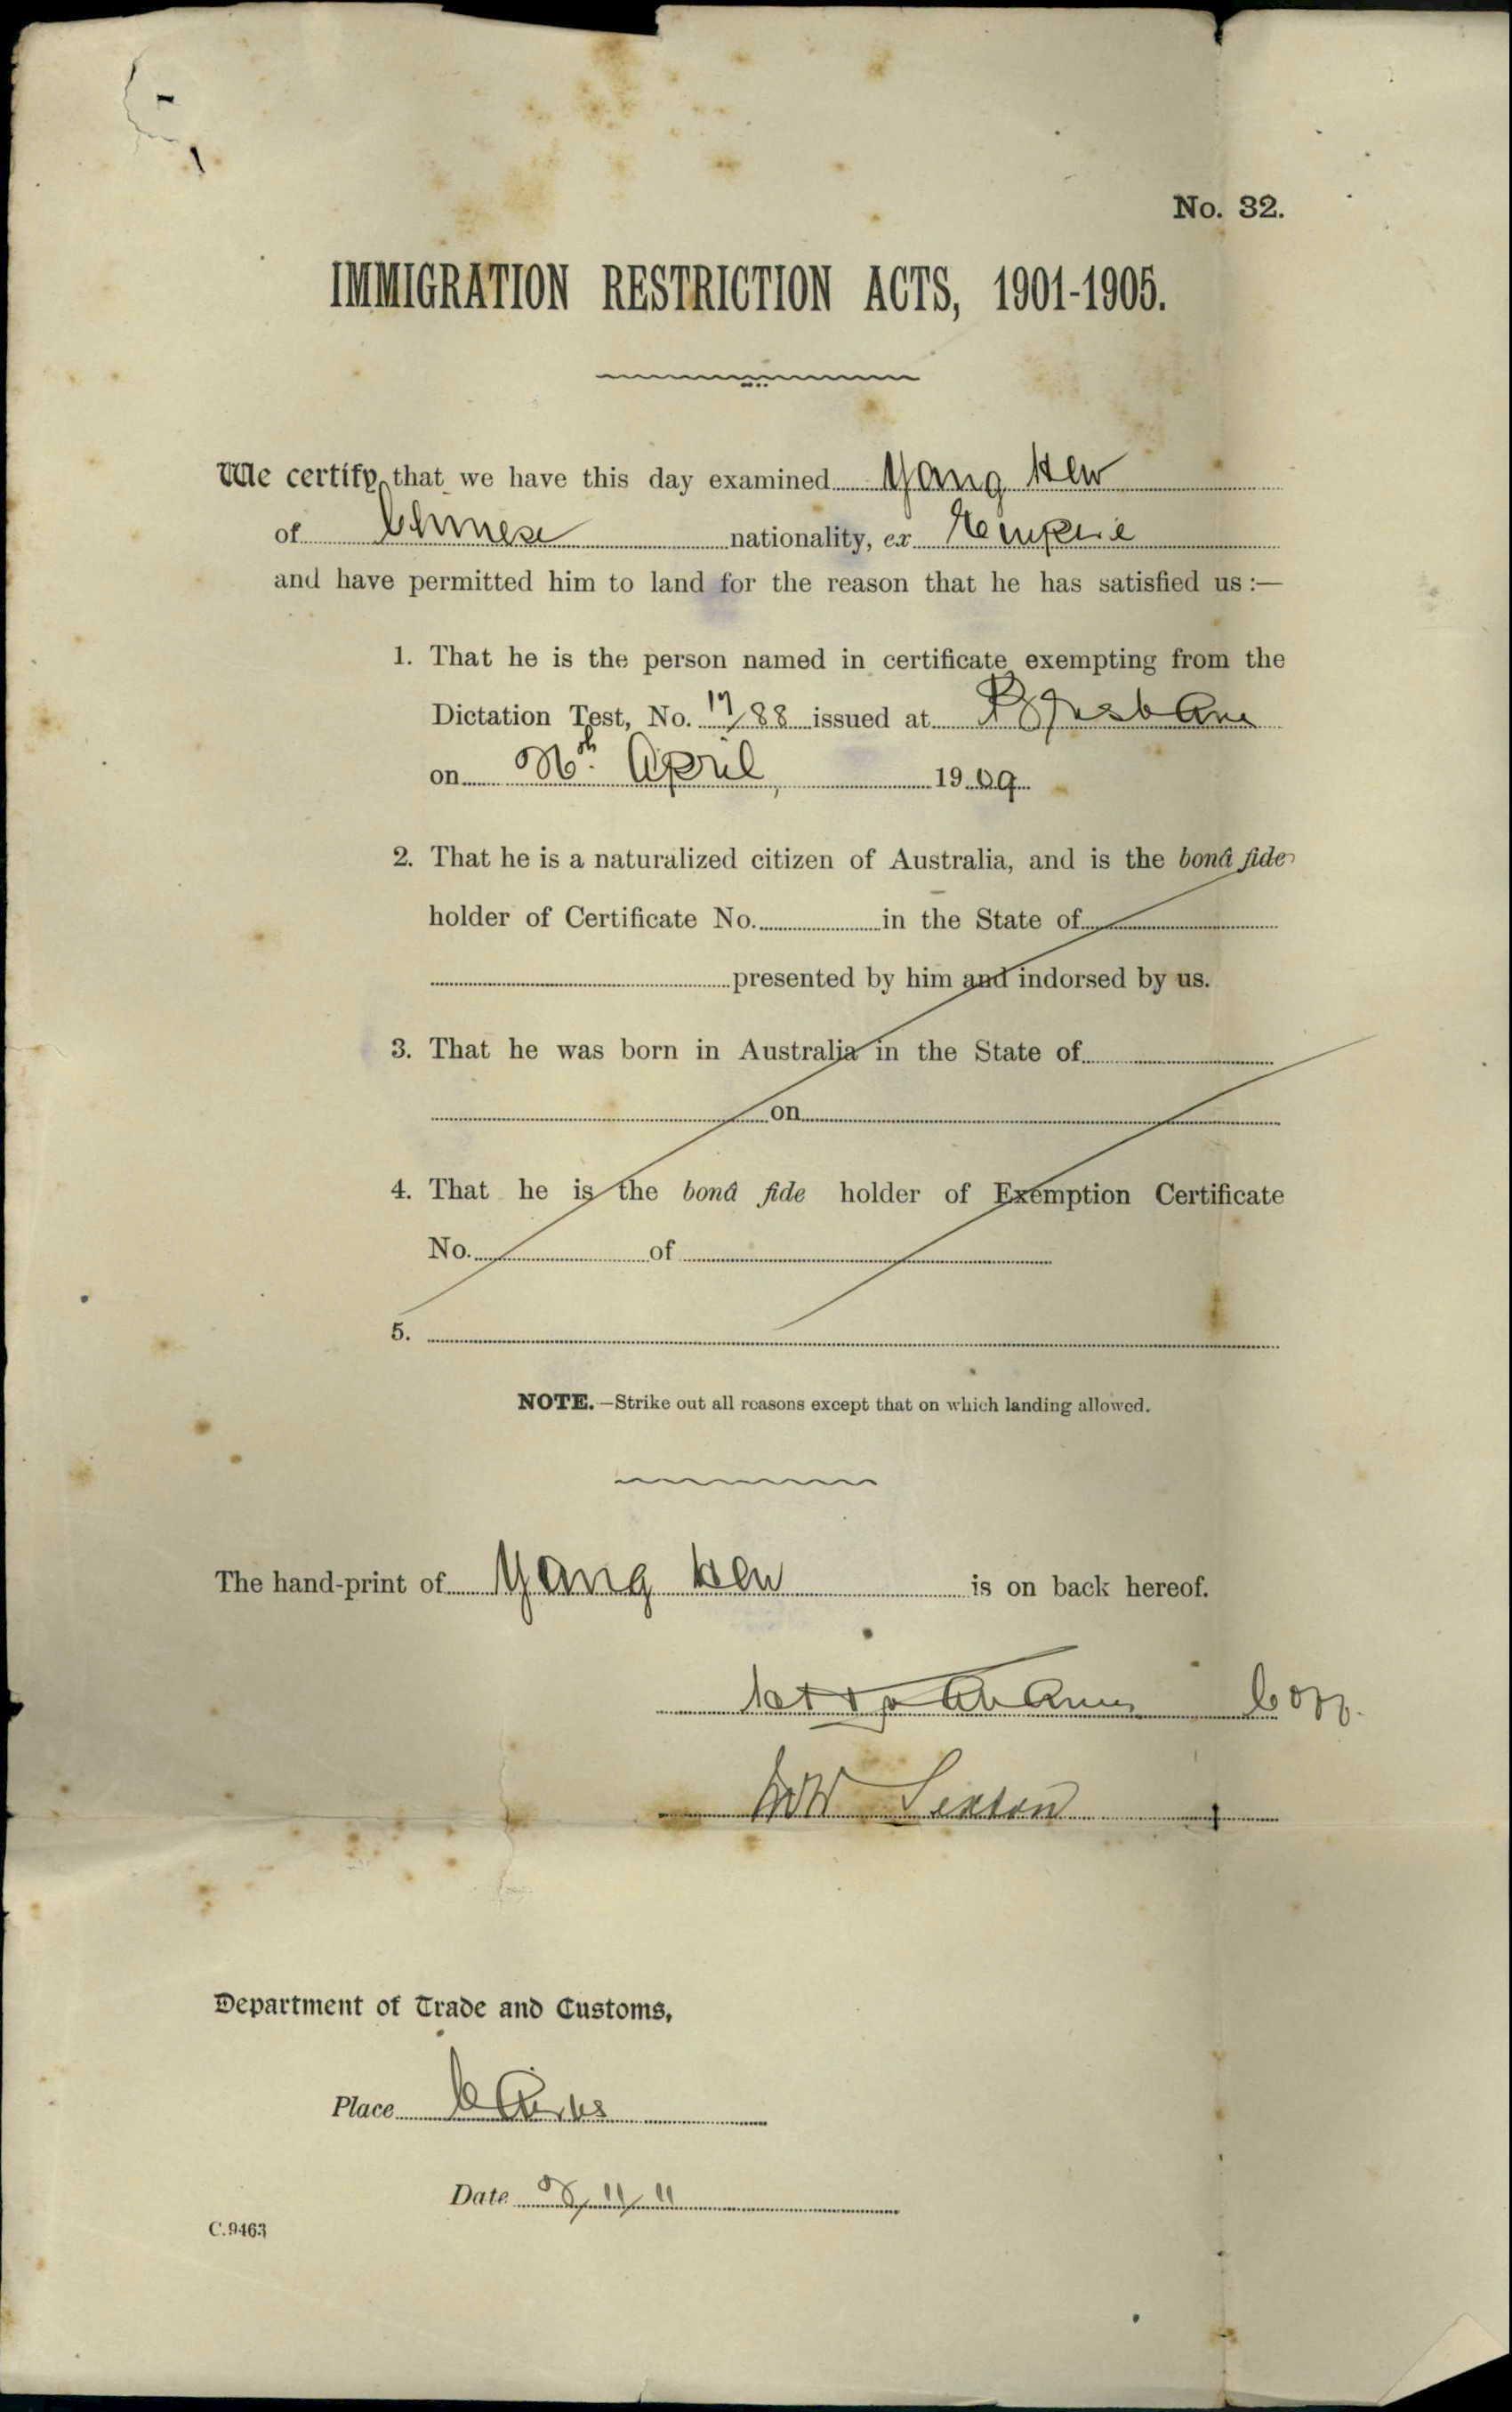 No. 32.
IMMIGRATION RESTRICTION ACTS, 1901-1905.
We certify, that we have this day examined Yang Hew
of Chinese nationality, ex Empire
and have permitted him to land for the reason that he has satisfied us :—
1. That he is the person named in certificate exempting from the
Dictation Test, No. 17/88 issued at Brisbane
on April, 1909
2. That he is a naturalized citizen of Australia, and is the bonâ fide
holder of Certificate No. in the State of
presented by him and indorsed by us.
3. That he was born in Australia in the State of
on
4. That he is the bonâ fide holder of Exemption Certificate
No. of
5.
NOTE.—Strike out all reasons except that on which landing allowed.
The hand-print of Yang Hew is on back hereof.
Sexton
Department of Trade and Customs,
Place Cairns
Date 8/11/11
C.9463